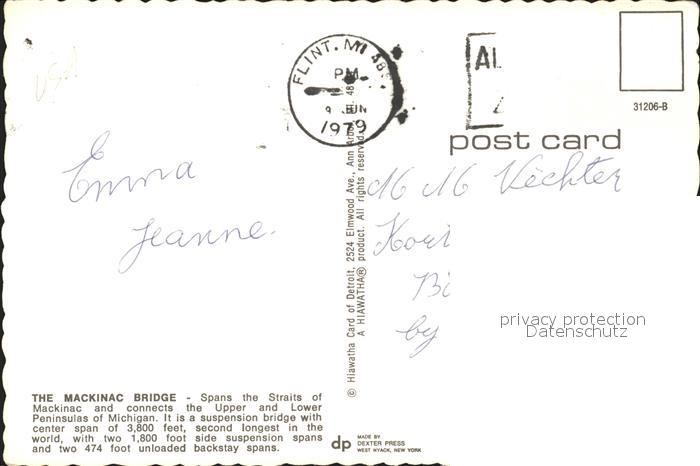 USA
FLINT, MI 48
PM
9 JUN
1979
AL
31206-B
post card
Emma
Jeanne.
M M Vechter
Koei
Bi
by
privacy protection
Datenschutz
© Hiawatha Card of Detroit, 2524 Elmwood Ave., Ann Arbor, MI 48
A HIAWATHA® product. All rights reserved.
THE MACKINAC BRIDGE - Spans the Straits of
Mackinac and connects the Upper and Lower
Peninsulas of Michigan. It is a suspension bridge with
center span of 3,800 feet, second longest in the
world, with two 1,800 foot side suspension spans
and two 474 foot unloaded backstay spans.
dp MADE BY
DEXTER PRESS
WEST NYACK, NEW YORK